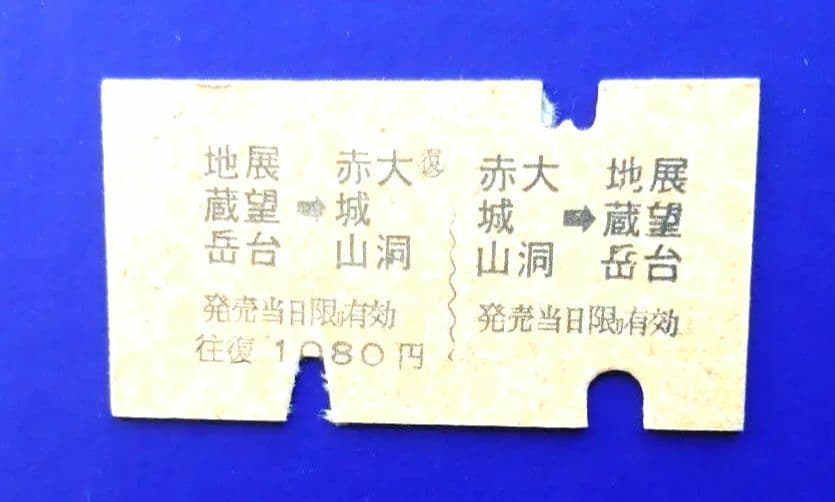 地展 赤大 ㊝復
蔵望 ➡ 城
岳台 山洞
発売当日限り有効
往復 1080円
赤大 地展
城 ➡ 蔵望
山洞 岳台
発売当日限り有効